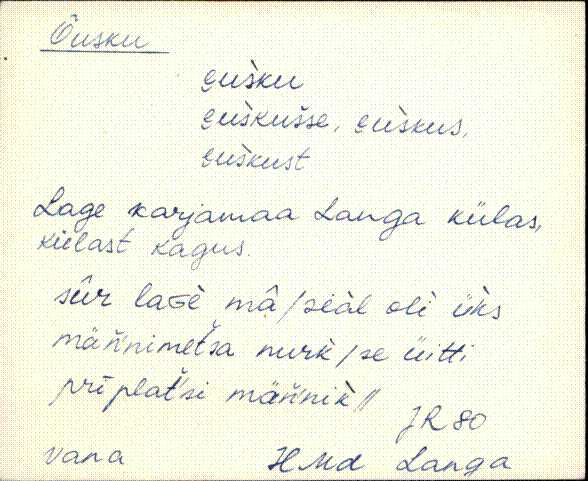 Õusku
e̮u̬sku
e̮u̬skusse, e̮u̬skus,
e̮u̬skust
Lage karjamaa Langa külas,
külast kagus.
sûr laGè mâ / siàl olì ük̀s
mäńńimetsa nurk̀ / se üitti
prīplat́si mäńńik̀ //
JR 80
vana HMd Langa